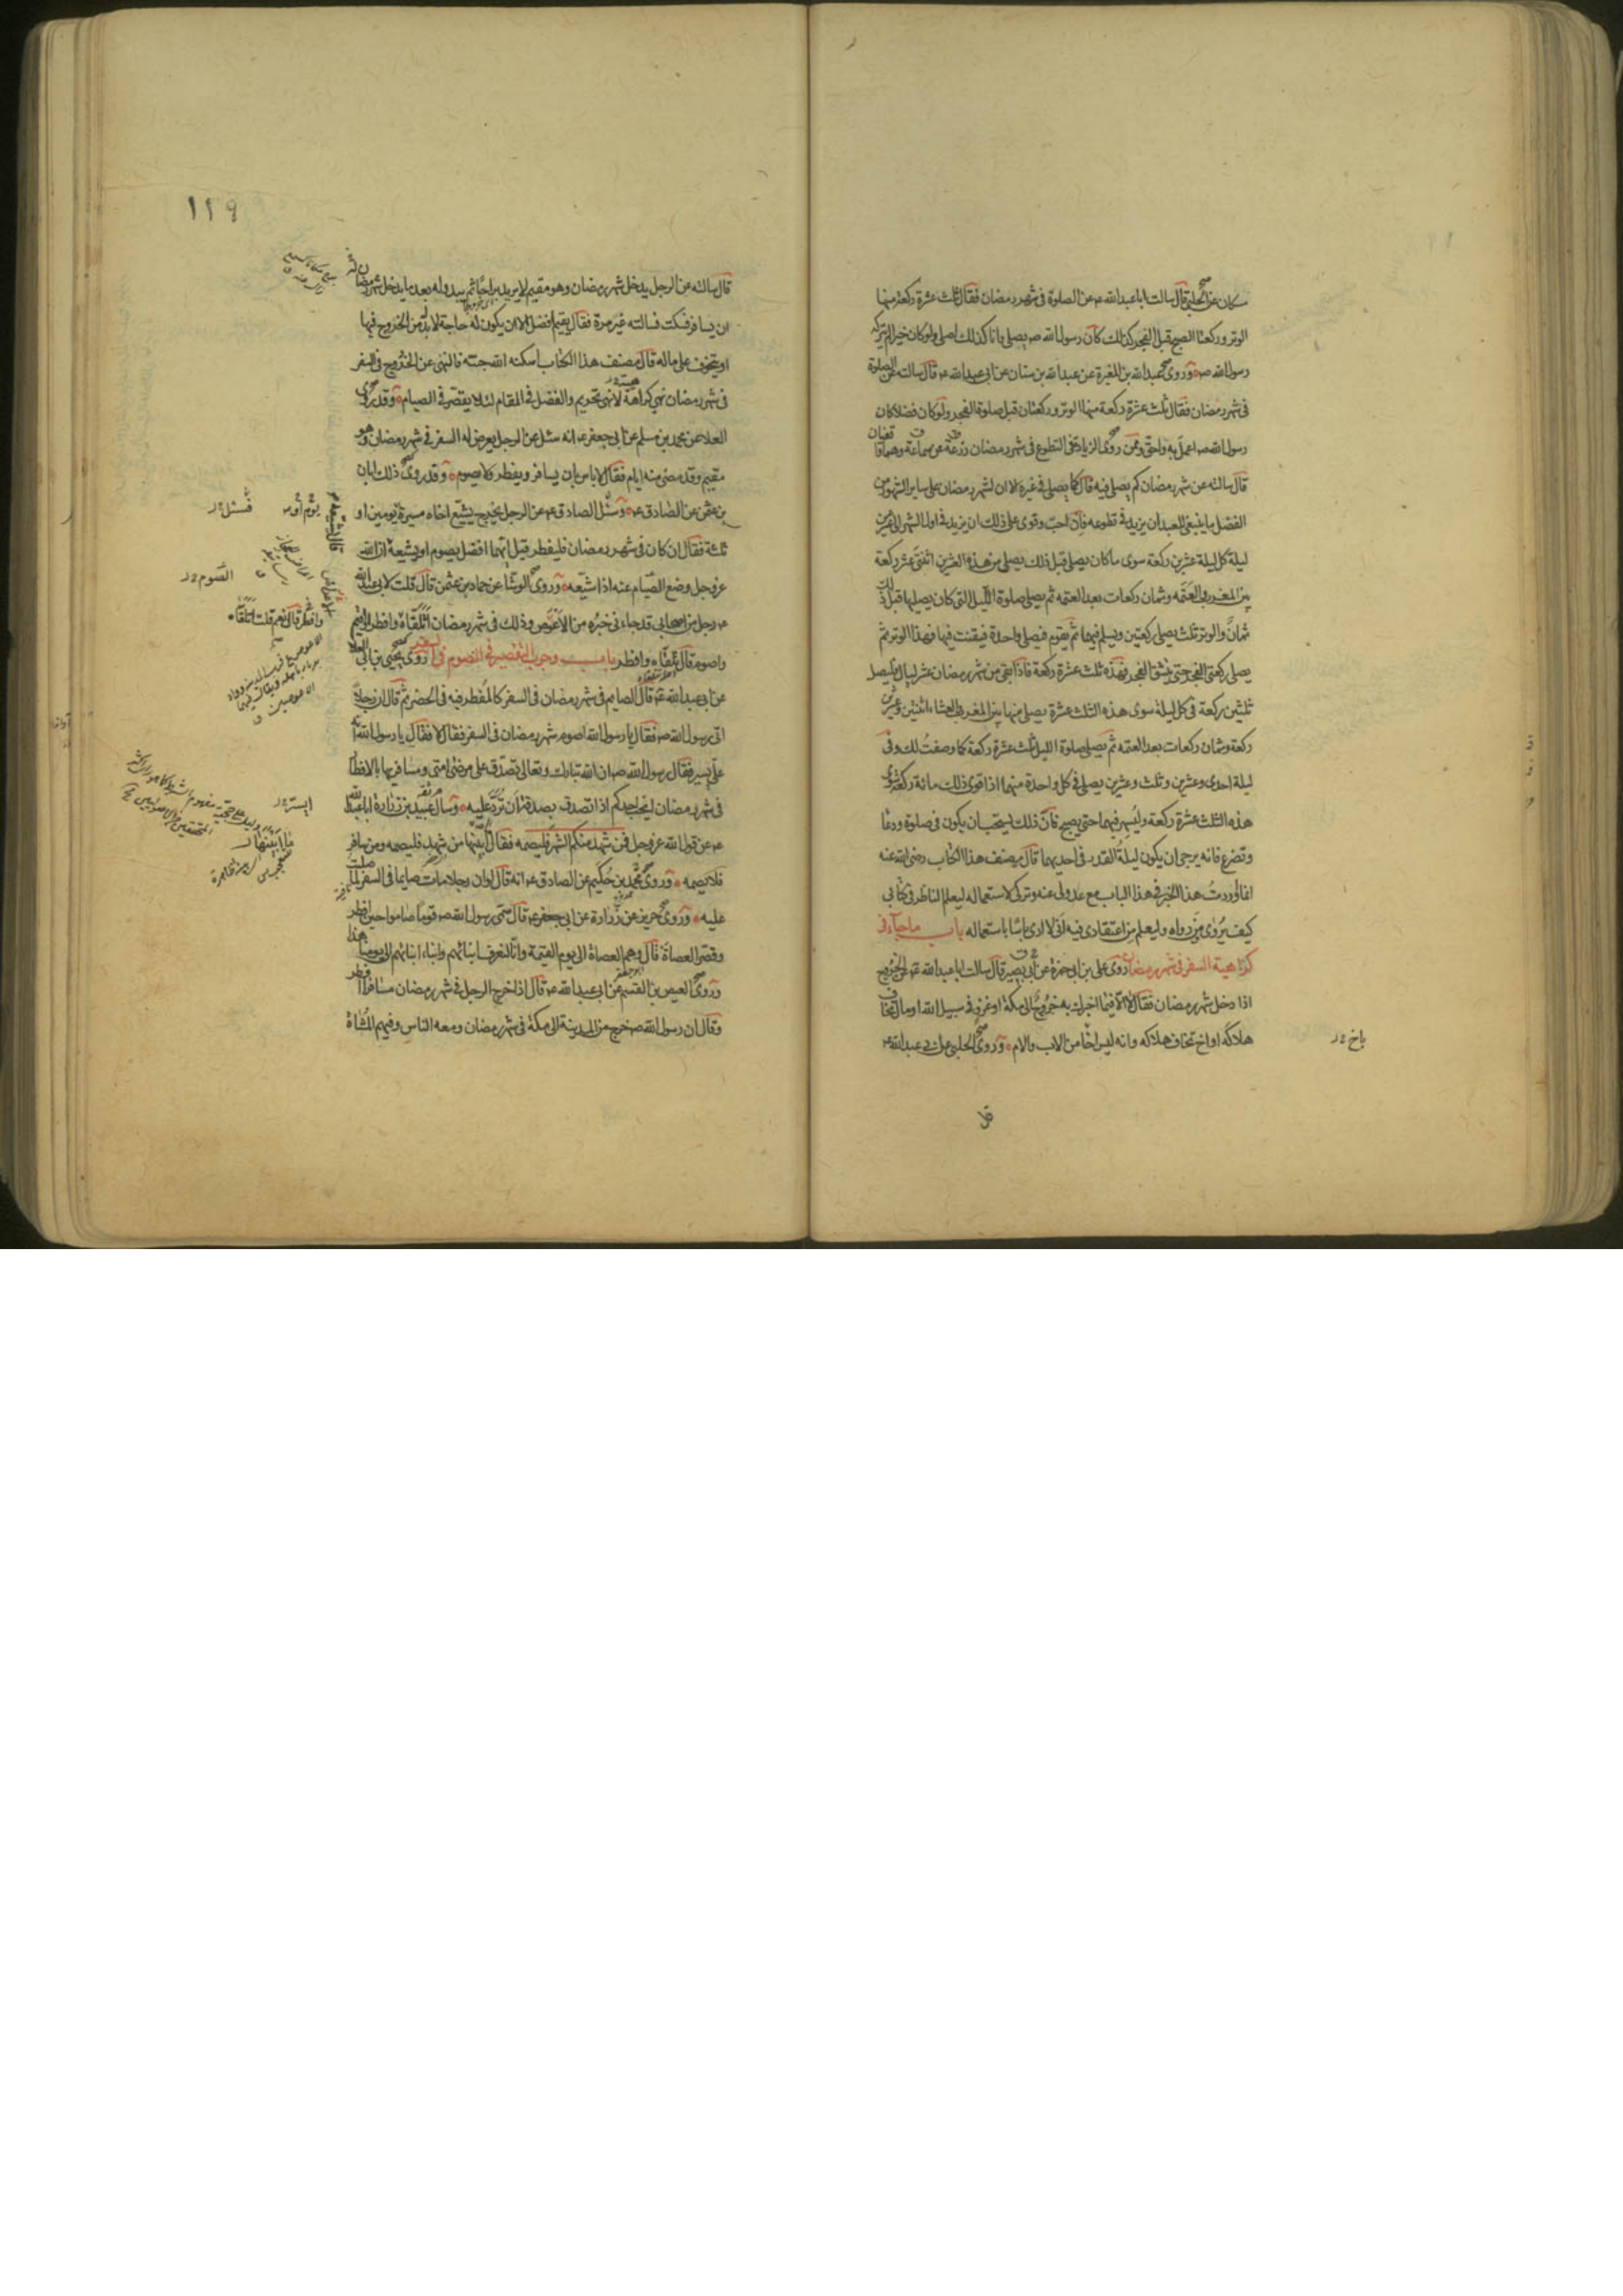 مسكان عن الحلبي قال سالت ابا عبد الله ع عن الصلوة في شهر رمضان فقال ثلث عشرة ركعة منها
الوتر وركعتا الصبح قبل الفجر كذلك كان رسول الله ص يصلي وانا كذلك اصلي ولو كان خيرا لم يتركه
رسول الله ص وروى عبد الله بن المغيرة عن عبد الله بن سنان عن ابي عبد الله ع قال سالته عن الصلوة
في شهر رمضان فقال ثلث عشرة ركعة منها الوتر وركعتان قبل صلوة الفجر ولو كان فضلا كان
رسول الله ص اعمل به واحق وممن روى الزيادة في التطوع في شهر رمضان زرعة عن سماعة وهما واقفيان
قال سالته عن شهر رمضان كم يصلى فيه قال كما يصلى في غيره الا ان لشهر رمضان على ساير الشهور من
الفضل ما ينبغي للعبد ان يزيد في تطوعه فان احب وقوى على ذلك ان يزيد في اول الشهر الى عشرين
ليلة كل ليلة عشرين ركعة سوى ما كان يصلي قبل ذلك يصلي من هذه العشرين اثنتي عشر ركعة
بين المغرب والعتمة وثمان ركعات بعد العتمة ثم يصلي صلوة الليل التي كان يصليها قبل ذلك
ثمان والوتر ثلث يصلي ركعتين ويسلم فيهما ثم يقوم فيصلي واحدة فيقنت فيها فهذا الوتر ثم
يصلي ركعتي الفجر حتى ينشق الفجر فهذه ثلث عشرة ركعة فاذا بقى من شهر رمضان عشر ليال فليصل
ثلثين ركعة في كل ليلة سوى هذه الثلث عشرة يصلي منها بين المغرب والعشاء اثنتين وعشرين
ركعة وثمان ركعات بعد العتمة ثم يصلي صلوة الليل ثلث عشرة ركعة كما وصفت لك وفي
ليلة احدى وعشرين وثلث وعشرين يصلي في كل واحدة منهما اذا قوى ذلك مائة ركعة سوى
هذه الثلث عشرة ركعة وليسهر فيهما حتى يصبح فان ذلك يستحب ان يكون في صلوة ودعا
وتضرع فانه يرجى ان يكون ليلة القدر في احديهما قال مصنف هذا الكتاب رضى الله عنه
انما اوردت هذا الخبر في هذا الباب مع عدولي عنه وتركي لاستعماله ليعلم الناظر في كتابي
كيف يروى من رواه وليعلم من اعتقادي فيه اني لا ارى باسا باستعماله باب ما جاء في
كراهية السفر في شهر رمضان روى علي بن ابي حمزة عن ابي بصير قال سالت ابا عبد الله ع عن الخروج
اذا دخل شهر رمضان فقال لا الا فيما اخبرك به خروج الى مكة او غزو في سبيل الله او مال تخاف
هلاكه او اخ تخاف هلاكه وانه ليس اخا من الاب والام وروى الحلبي عن ابي عبد الله ع
باخ
قال
١١٩
قال سالته عن الرجل يدخل شهر رمضان وهو مقيم لا يريد براحا ثم يبدو له بعد ما يدخل شهر رمضان
ان يسافر فسكت فسالته غير مرة فقال يقيم افضل الا ان يكون له حاجة لا بد من الخروج فيها
او يتخوف على ماله قال مصنف هذا الكتاب اسكنه الله جنته فالنهي عن الخروج في السفر
في شهر رمضان نهي كراهة لا نهي تحريم والفضل في المقام لئلا يقصر في الصيام وقد روى
العلا عن محمد بن مسلم عن ابي جعفر ع انه سئل عن الرجل يعرض له السفر في شهر رمضان وهو
مقيم وقد مضى منه ايام فقال لا باس بان يسافر ويفطر ولا يصوم وقد روى ذلك ابان
بن عثمن عن الصادق ع وسئل الصادق ع عن الرجل يخرج يشيع اخاه مسيرة يومين او
ثلثة فقال ان كان في شهر رمضان فليفطر قيل ايهما افضل يصوم او يشيعه قال يشيعه ان الله
عز وجل وضع الصيام عنه اذا شيعه وروى الوشا عن حماد بن عثمن قال قلت لابي عبد الله
ع رجل من اصحابي قد جاءني خبره من الاعوص وذلك في شهر رمضان اتلقاه وافطر قال نعم قلت اتلقاه وافطر او اقيم
واصوم قال تلقاه وافطر باب وجوب التقصير في الصوم في السفر روى يحيى بن ابي العلا
عن ابي عبد الله ع قال الصايم في شهر رمضان في السفر كالمفطر فيه في الحضر ثم قال ان رجلا
اتى رسول الله ص فقال يا رسول الله اصوم شهر رمضان في السفر فقال لا فقال يا رسول الله انه
علي يسير فقال رسول الله ص ان الله تبارك وتعالى تصدق على مرضى امتي ومسافريها بالافطار
في شهر رمضان ايحب احدكم اذا تصدق بصدقة ان ترد عليه وسال عبيد بن زرارة ابا عبد الله
ع عن قول الله عز وجل فمن شهد منكم الشهر فليصمه فقال ما ابينها من شهد فليصمه ومن سافر
فلا يصمه وروى محمد بن حكيم عن الصادق ع انه قال لو ان رجلا مات صايما في السفر لما صليت
عليه وروى حريز عن زرارة عن ابي جعفر ع قال سمى رسول الله ص قوما صاموا حين افطر
وقصر العصاة قال وهم العصاة الى يوم القيمة وانا لنعرف ابنائهم وابناء ابنائهم الى يومنا هذا
وروى العيص بن القسم عن ابي عبد الله ع قال اذا خرج الرجل في شهر رمضان مسافرا افطر
وقال ان رسول الله ص خرج من المدينة الى مكة في شهر رمضان ومعه الناس وفيهم المشاة
فسئل
الصوم